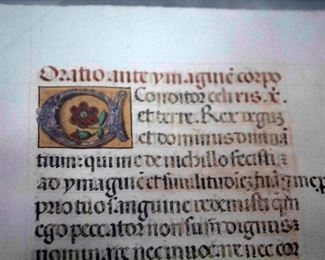 Oratio ante ymaginē corpo
Conditor celi ris. X.
et terre. Rex regum
et dominus dominā
tium: qui me de nichillo fecisti
ad ymaginē et similitudinē tuā
prio tuo sanguine redemisti quē
ego peccator non sum dignus
nominare nec inuocare nec cor